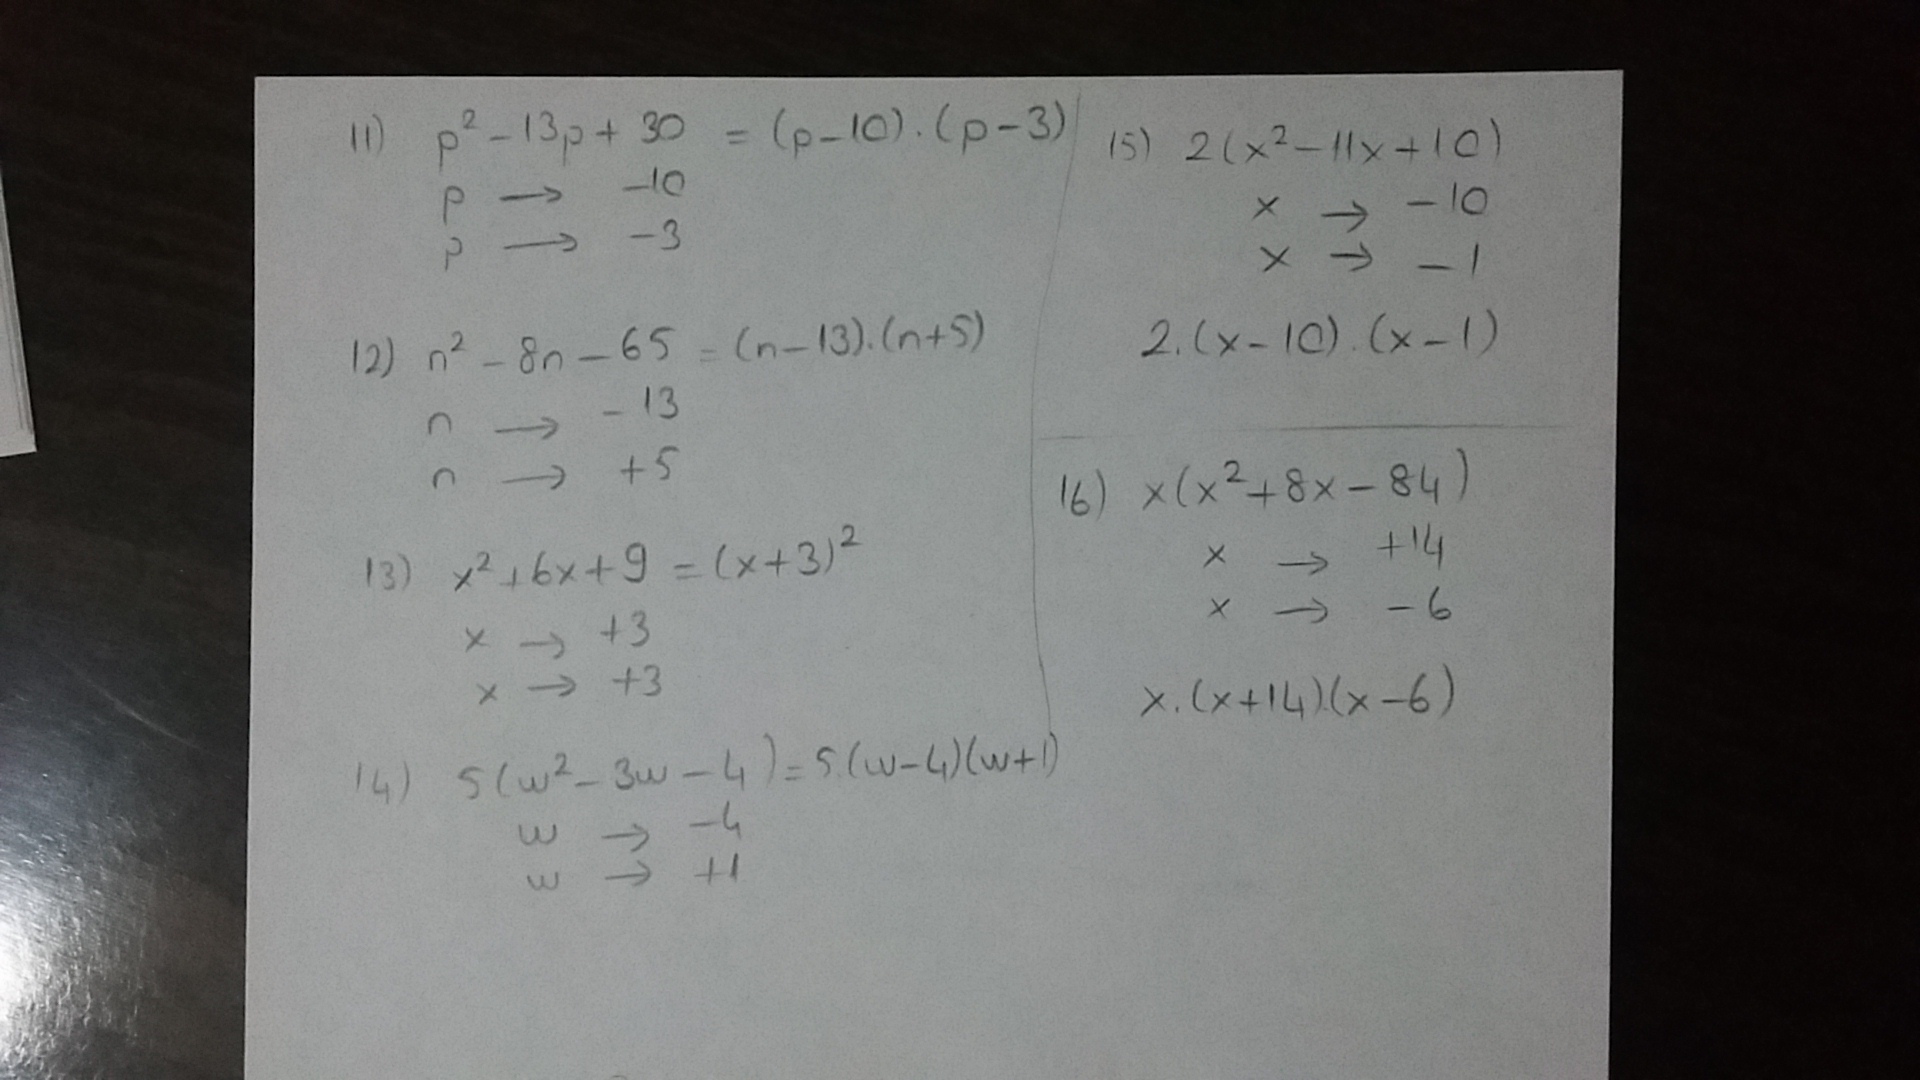 11) p² - 13p + 30 = (p-10).(p-3)
p → -10
p → -3
12) n² - 8n - 65 = (n-13).(n+5)
n → -13
n → +5
13) x² + 6x + 9 = (x+3)²
x → +3
x → +3
14) 5(w² - 3w - 4) = 5.(w-4)(w+1)
w → -4
w → +1
15) 2(x² - 11x + 10)
x → -10
x → -1
2.(x-10).(x-1)
16) x(x² + 8x - 84)
x → +14
x → -6
x.(x+14).(x-6)